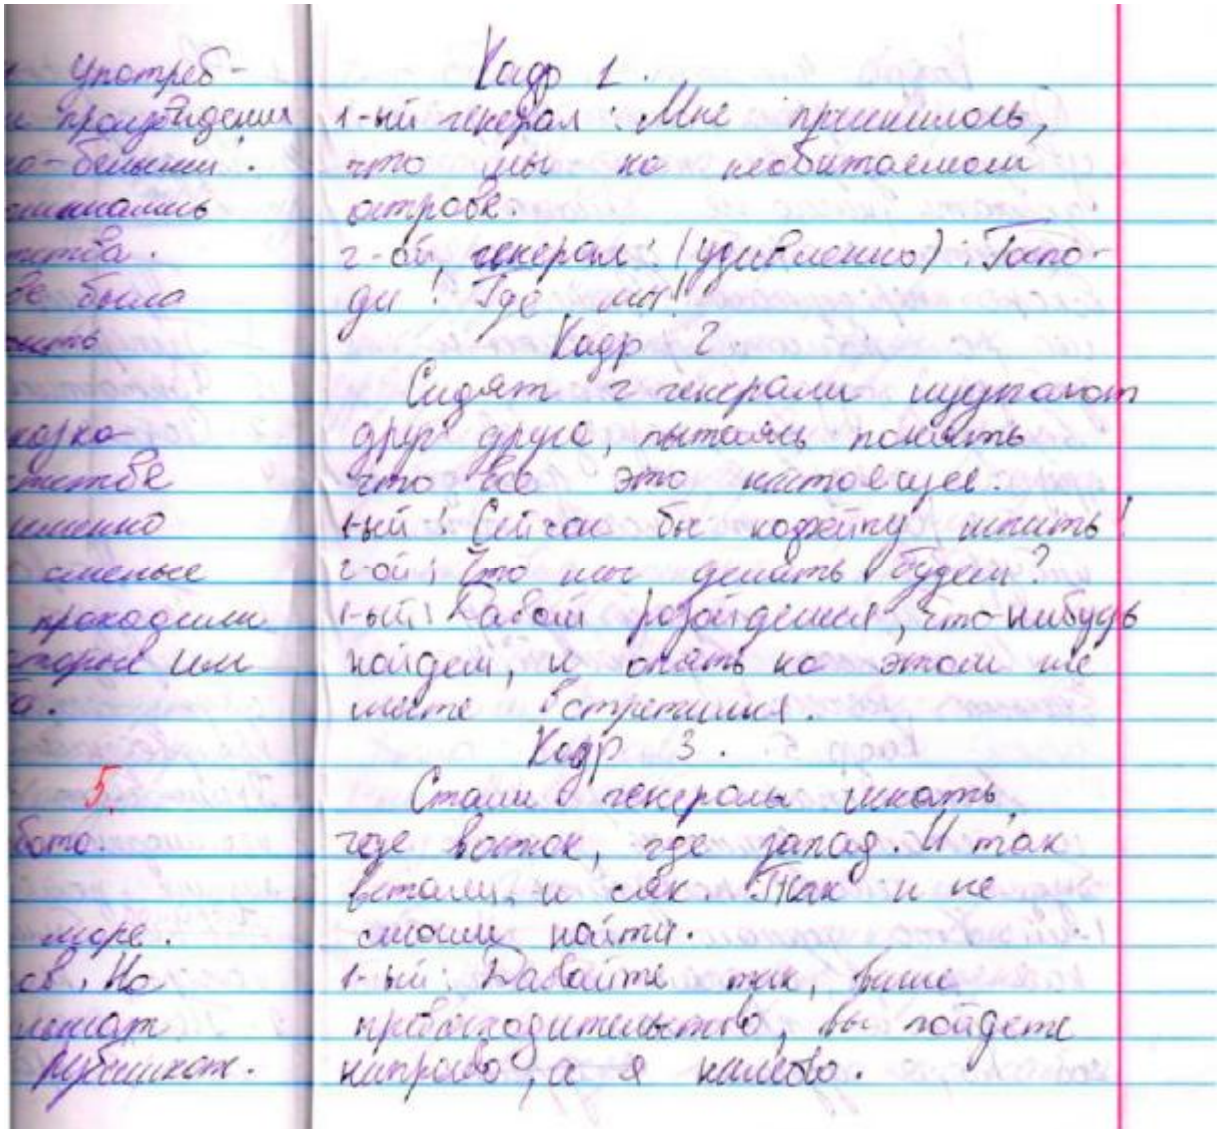 Употреб-
произведения
о-белыми.
была
море.
Но
лежат
рубашках.
5.
Кадр 1.
1-ый генерал: Мне приснилось,
что мы на необитаемом
острове.
2-ой генерал: (удивленно): Госпо-
ди! Где мы!
Кадр 2.
Сидят 2 генерала щупают
друг друга, пытаясь понять
что все это настоящее.
1-ый: Сейчас бы кофейку испить!
2-ой: Что мы делать будем?
1-ый: Давай разойдемся, что-нибудь
найдем, и опять на этом же
месте встретимся.
Кадр 3.
Стали генералы искать,
где восток, где запад. И так
встали, и сяк. Так и не
смогли найти.
1-ый: Давайте так, ваше
превосходительство, вы пойдете
направо, а я налево.